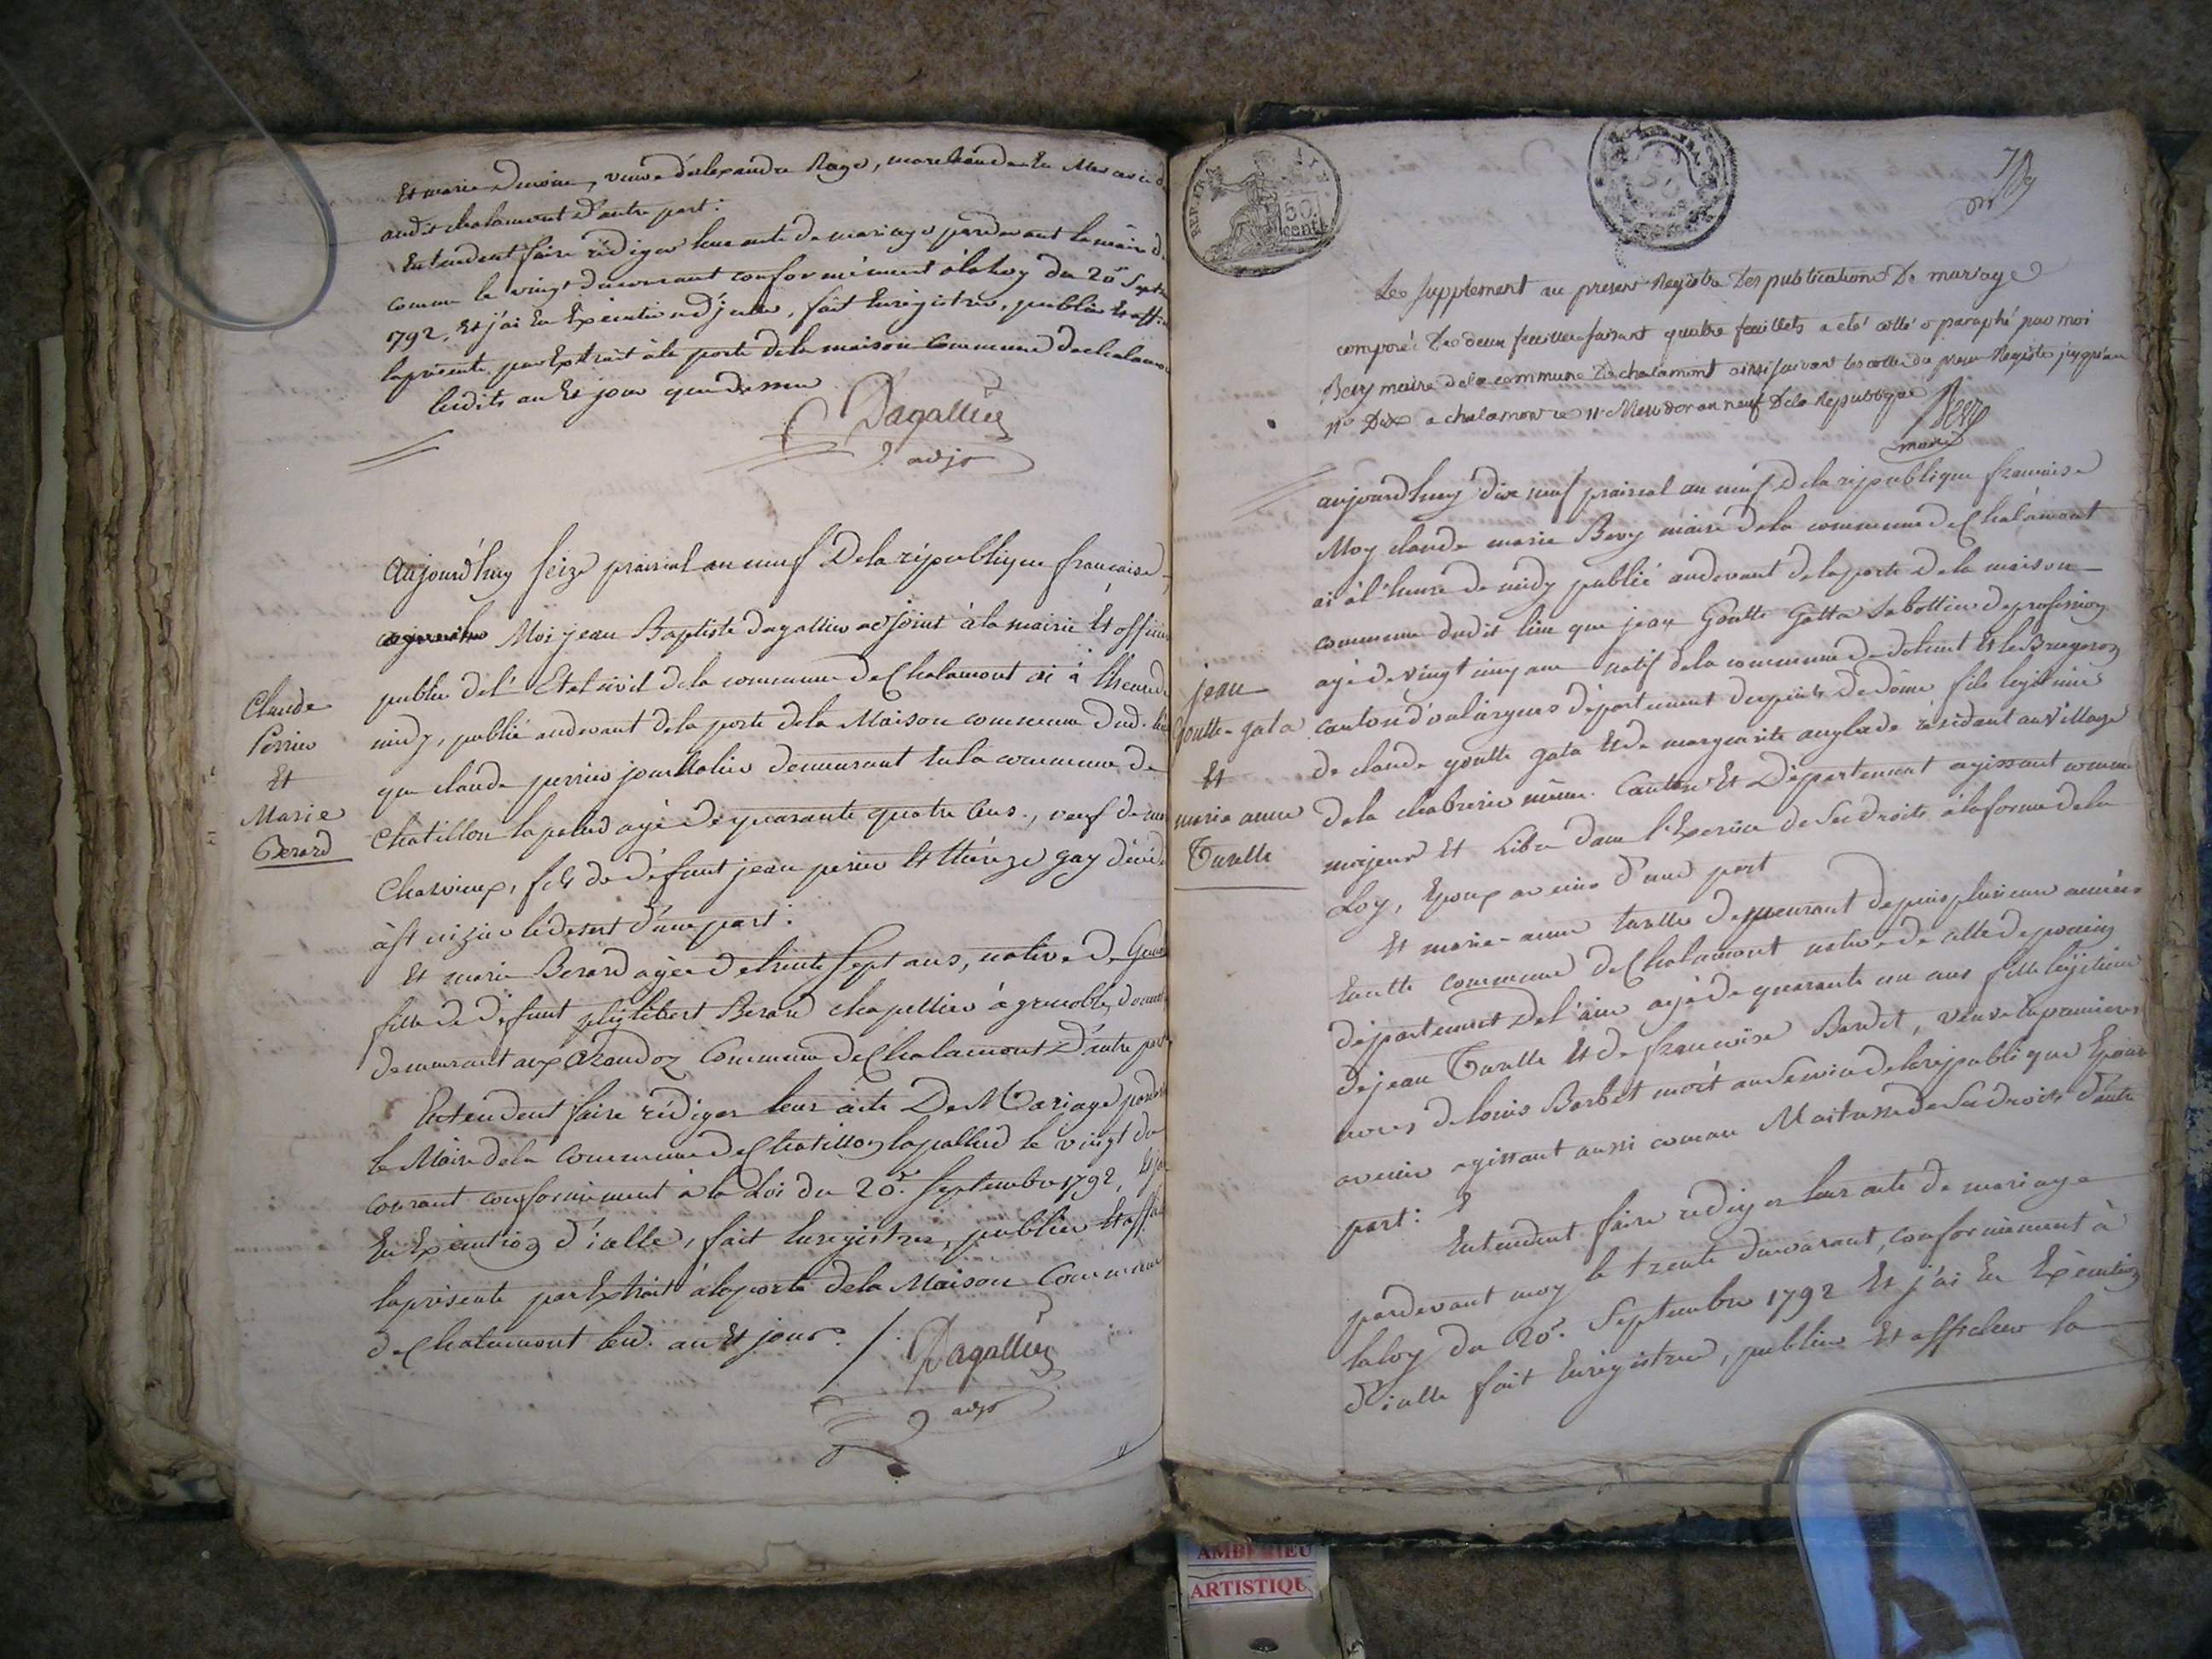 Et marie Demoine, veuve d'alexandre Rage, marchande
audit chalamont d'autre part :
Entendent faire rédiger leur acte de mariage pardevant le maire
comme le vingt du courant conformément à la loy du 20e Septe
1792, Et j'ai En Execution d'jcelle, fait Enregistrer, publier Et affi
la présente par Extrait à la porte de la maison Commune de chalamo
lesdits an Et jour que dessus
Dagallier
adjt
aujourd'huy seize prairial an neuf De la république francaise
Moi jean Baptiste dagallier adjoint à la mairie Et officier
public de l'Etat civil de la commune de Chalamont ai à l'heure de
midy, publié audevant de la porte de la Maison commune dud. lieu
que claude perrier journallier demeurant En la commune de
Chatillon la palud agé de quarante quatre ans, veuf de
Charvieux, fils de défunt jean perrier Et thérèze gay décédé
à st nizier le desert d'une part :
Et marie Berard agée de trente sept ans, native de
fille de défunt philibert Berard chapellier à grenoble,
demeurant aux Commune de Chalamont D'autre part
Entendent faire rédiger leur acte De Mariage pardev
le Maire de la Commune de Chatillon la pallud le vingt du
courant conformément à la Loi du 20e. Septembre 1792, Et j'ai
En Execution d'icelle, fait Enregistrer, publier Et affi
la présente par Extrait à la porte de la Maison Commune
de Chalamont lesd. an Et jour.
Dagallier
adjt
Claude
Perrier
Et
Marie
Berard
REP. FRA.
50
cent.
Le supplement au present Registre Des publications De mariage
composé De deux feuilles faisant quatre feuillets a eté cotté & paraphé par moi
Bevy maire de la commune De chalamont ainsi suivant les cottes du present Registre jusqu'au
n° Dix a chalamont ce 11 Messidor an neuf De la Republique
Bevy
maire
aujourd'huy dix neuf prairial an neuf de la république francaise
Moy claude marie Bevy maire de la commune de Chalamont
ai à l'heure de midy publié audevant de la porte de la maison
commune dudit lieu que jean Goutte Gatta Sabottier de profession
agé de vingt cinq ans natif de la commune de dolmet Et le Brugeron
canton d'oulargues département du puits de dôme fils legitime
de claude goutte gata Et de marguerite anglade résidant au village
de la chabrerie même Canton Et Département agissant comme
majeur Et Libre dans l'Exercice de Ses droits à la forme de la
Loy, Epoux avenir d'une part
Et marie anne turelle demeurant depuis plusieurs années
En cette commune de Chalamont native de celle de poncin
département de l'ain agée de quarante un ans fille légitime
de jean Turelle Et de francoise Bardet, veuve En premieres
noces de Louis Barbet mort au Service de la république Epouse
avenir agissant aussi comme Maitresse de Ses droits d'autre
part :
Entendent faire rediger leur acte de mariage
pardevant moy le trente du courant, conformément à
la loy du 20e. Septembre 1792 Et j'ai En Execution
d'icelle fait Enregistrer, publier Et afficher la
jean
Goutte-gata
Et
marie anne
Turelle
AMBERIEU
ARTISTIQU